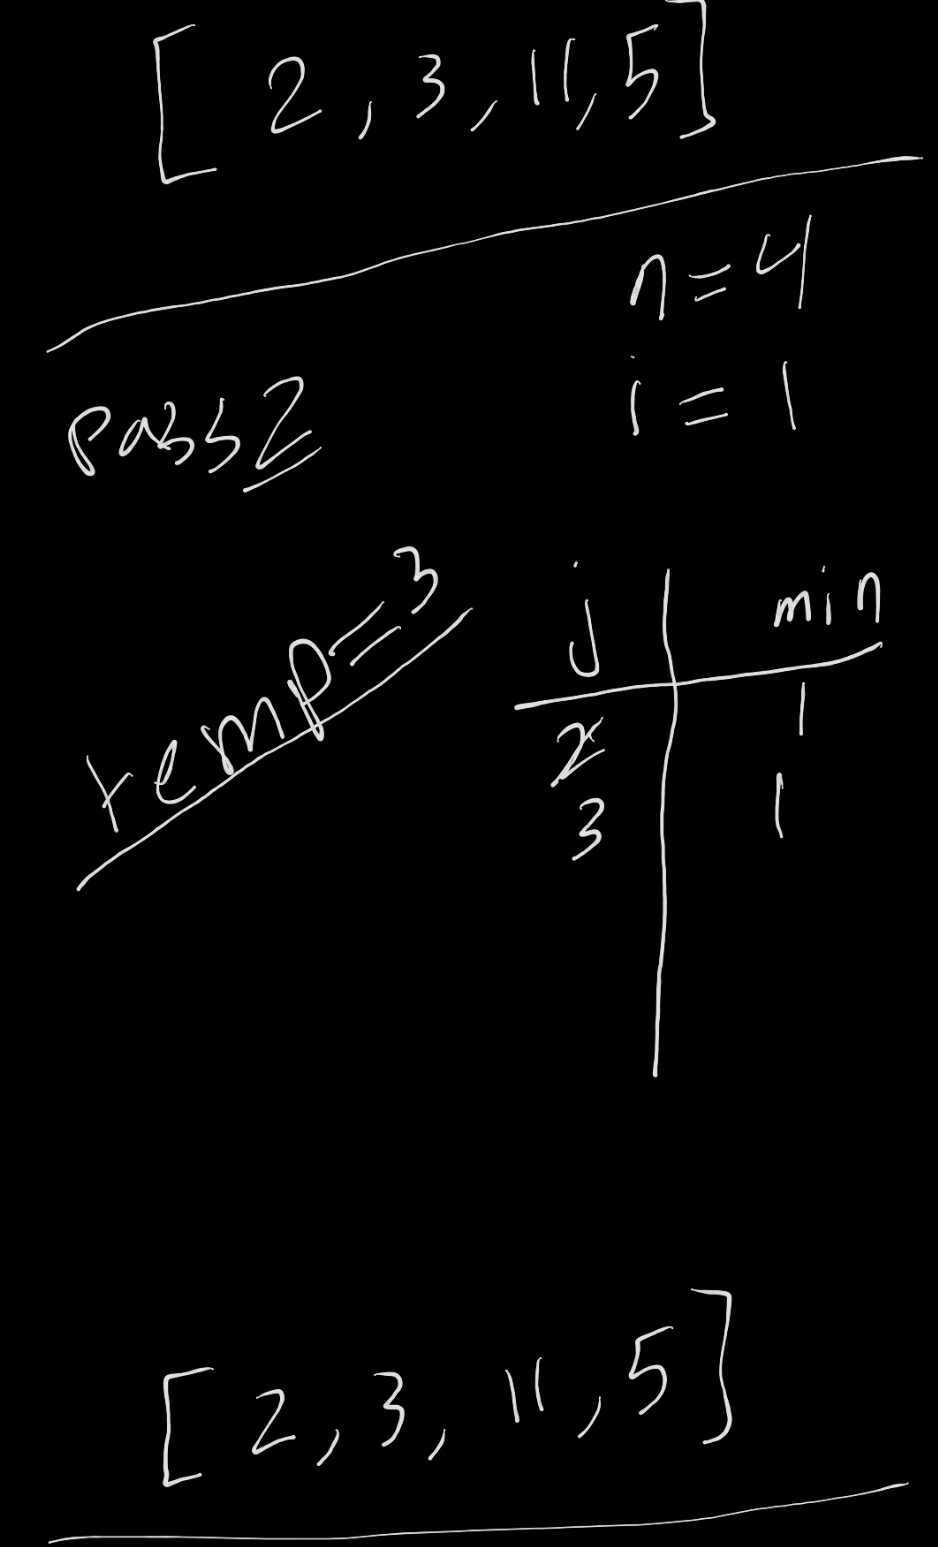 [ 2, 3, 11, 5]
n=4
Pass 2
i = 1
temp=3
j | min
2 | 1
3 | 1
[ 2, 3, 11, 5]